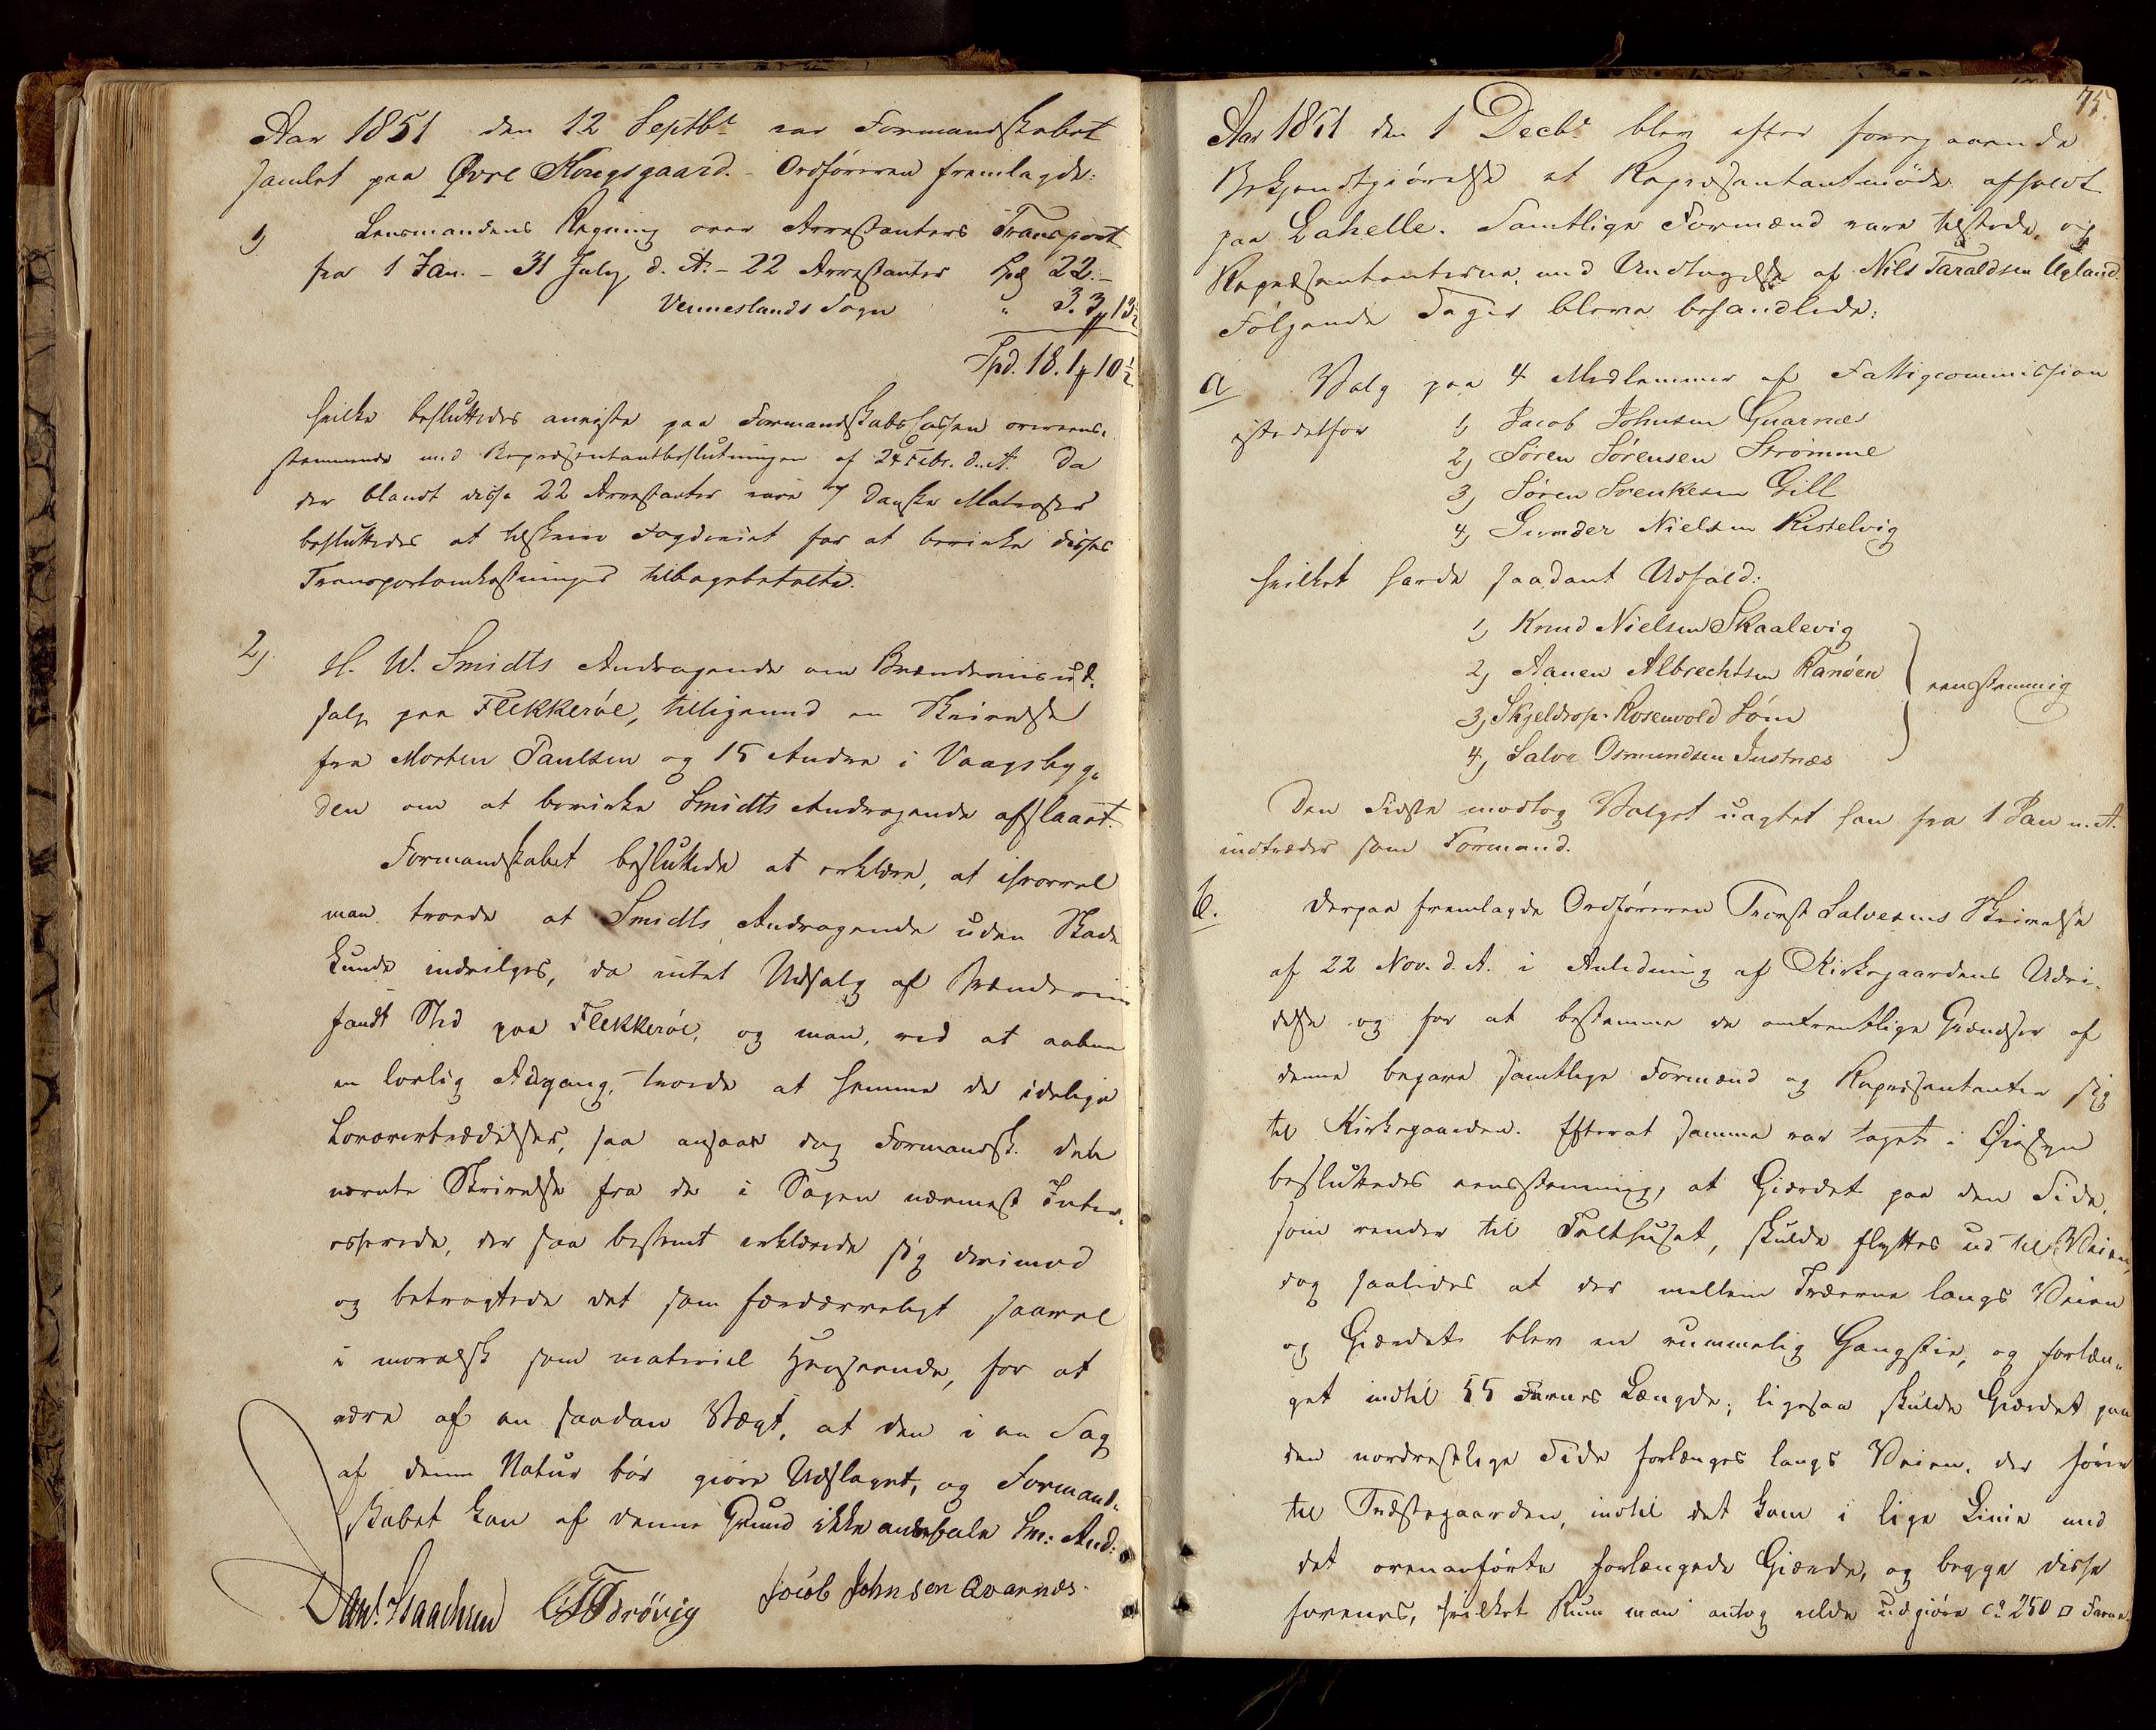 Aar 1851 den 12 Septbr var Formandskabet
samlet paa Øvre Kongsgaard. - Ordføreren fremlagde:
1) Lensmandens Regning over Arrestanters Transport
fra 1 Jan. - 31 July d. A. - 22 Arrestanter Spd 22. -
Venneslands Sogn " 3. 3 # 13½
Spd. 18. 1 # 10½
hvilke besluttedes anviste paa Formandskabskassen overeens-
stemmende med Repræsentantbeslutningen af 24 Febr. d. A. Da
der blandt disse 22 Arrestanter vare 7 danske Matroser
besluttedes at tilskrive Fogderiet for at bevirke disses
Transportomkostninger tilbagebetalte.
2) H. W. Smidts Andragende om Brændeviinsud-
salg paa Flekkerøe, tilligemed en Skrivelse
fra Morten Paulsen og 15 Andre i Vaagsbyg-
den om at bevirke Smidts Andragende afslaaet.
Formandskabet besluttede at erklære, at ihvorvel
man troede at Smidts Andragende uden Skade
kunde indvilges, da intet Udsalg af Brændeviin
fandt Sted paa Flekkerøe, og man, ved at aabne
en lovlig Adgang, troede at hemme de idelige
Lovovertrædelser, saa ansaae dog Formandsk. den
nævnte Skrivelse fra de i Sagen nærmest Inter-
esserede, der saa bestemt erklærede sig derimod
og betragtede det som fordærveligt saavel
i moralsk som materiel Henseende, for at
være af en saadan Vægt, at den i en Sag
af denne Natur bør gjøre Udslaget, og Formand-
skabet kan af denne Grund ikke anbefale Sm: And:
Danl. Isaachsen Jacob Johnsen Qvarnæs.
75.
Aar 1851 den 1 Decbr blev efter foregaaende
Bekjendtgiørelse et Repræsentantmøde afholdt
paa Lahelle. Samtlige Formænd vare tilstede og
Repræsentanterne med Undtagelse af Nils Taraldsen Ugland.
Følgende Sager bleve behandlede:
a Valg paa 4 Medlemmer af Fattigcommission
istedetfor 1) Jacob Johnsen Quarnæs
2) Søren Sørensen Strømme
3) Søren Svenkesen Gill
4) Gunder Nielsen Kistelvig
hvilket havde saadant Udfald:
1) Knud Nielsen Skaalevig
2) Aanen Albrechtsen Randøen
3) Skjeldrop Rosenvold Søm eenstemmig
4) Salve Osmundsen Justnæs
Den Sidste modtog Valget uagtet han fra 1 Jan n. A.
indtræder som Formand.
b. Derpaa fremlagde Ordføreren Tronst Salvesens Skrivelse
af 22 Nov. d. A. i Anledning af Kirkegaardens Udvi-
delse og for at bestemme de omtrentlige Grændser af
denne begave samtlige Formænd og Repræsentanter sig
til Kirkegaarden. Efterat samme var taget i Øiesyn
besluttedes eensstemmig, at Gierdet paa den Side,
som vender til Telthuset, skulde flyttes ud til Veien,
dog saaledes at der mellem Træerne langs Veien
og Gierdet blev en rummelig Gangstie, og forlæn-
get indtil 55 Favnes Længde; ligesaa skulde Gierdet paa
den nordvestlige Side forlænges langs Veien, der fører
til Præstegaarden, indtil det kom i lige Linie med
det ovenanførte forlængede Gierde, og begge disse
forenes, hvilket Rum man antog vilde udgiøre ca 250 □ Favne